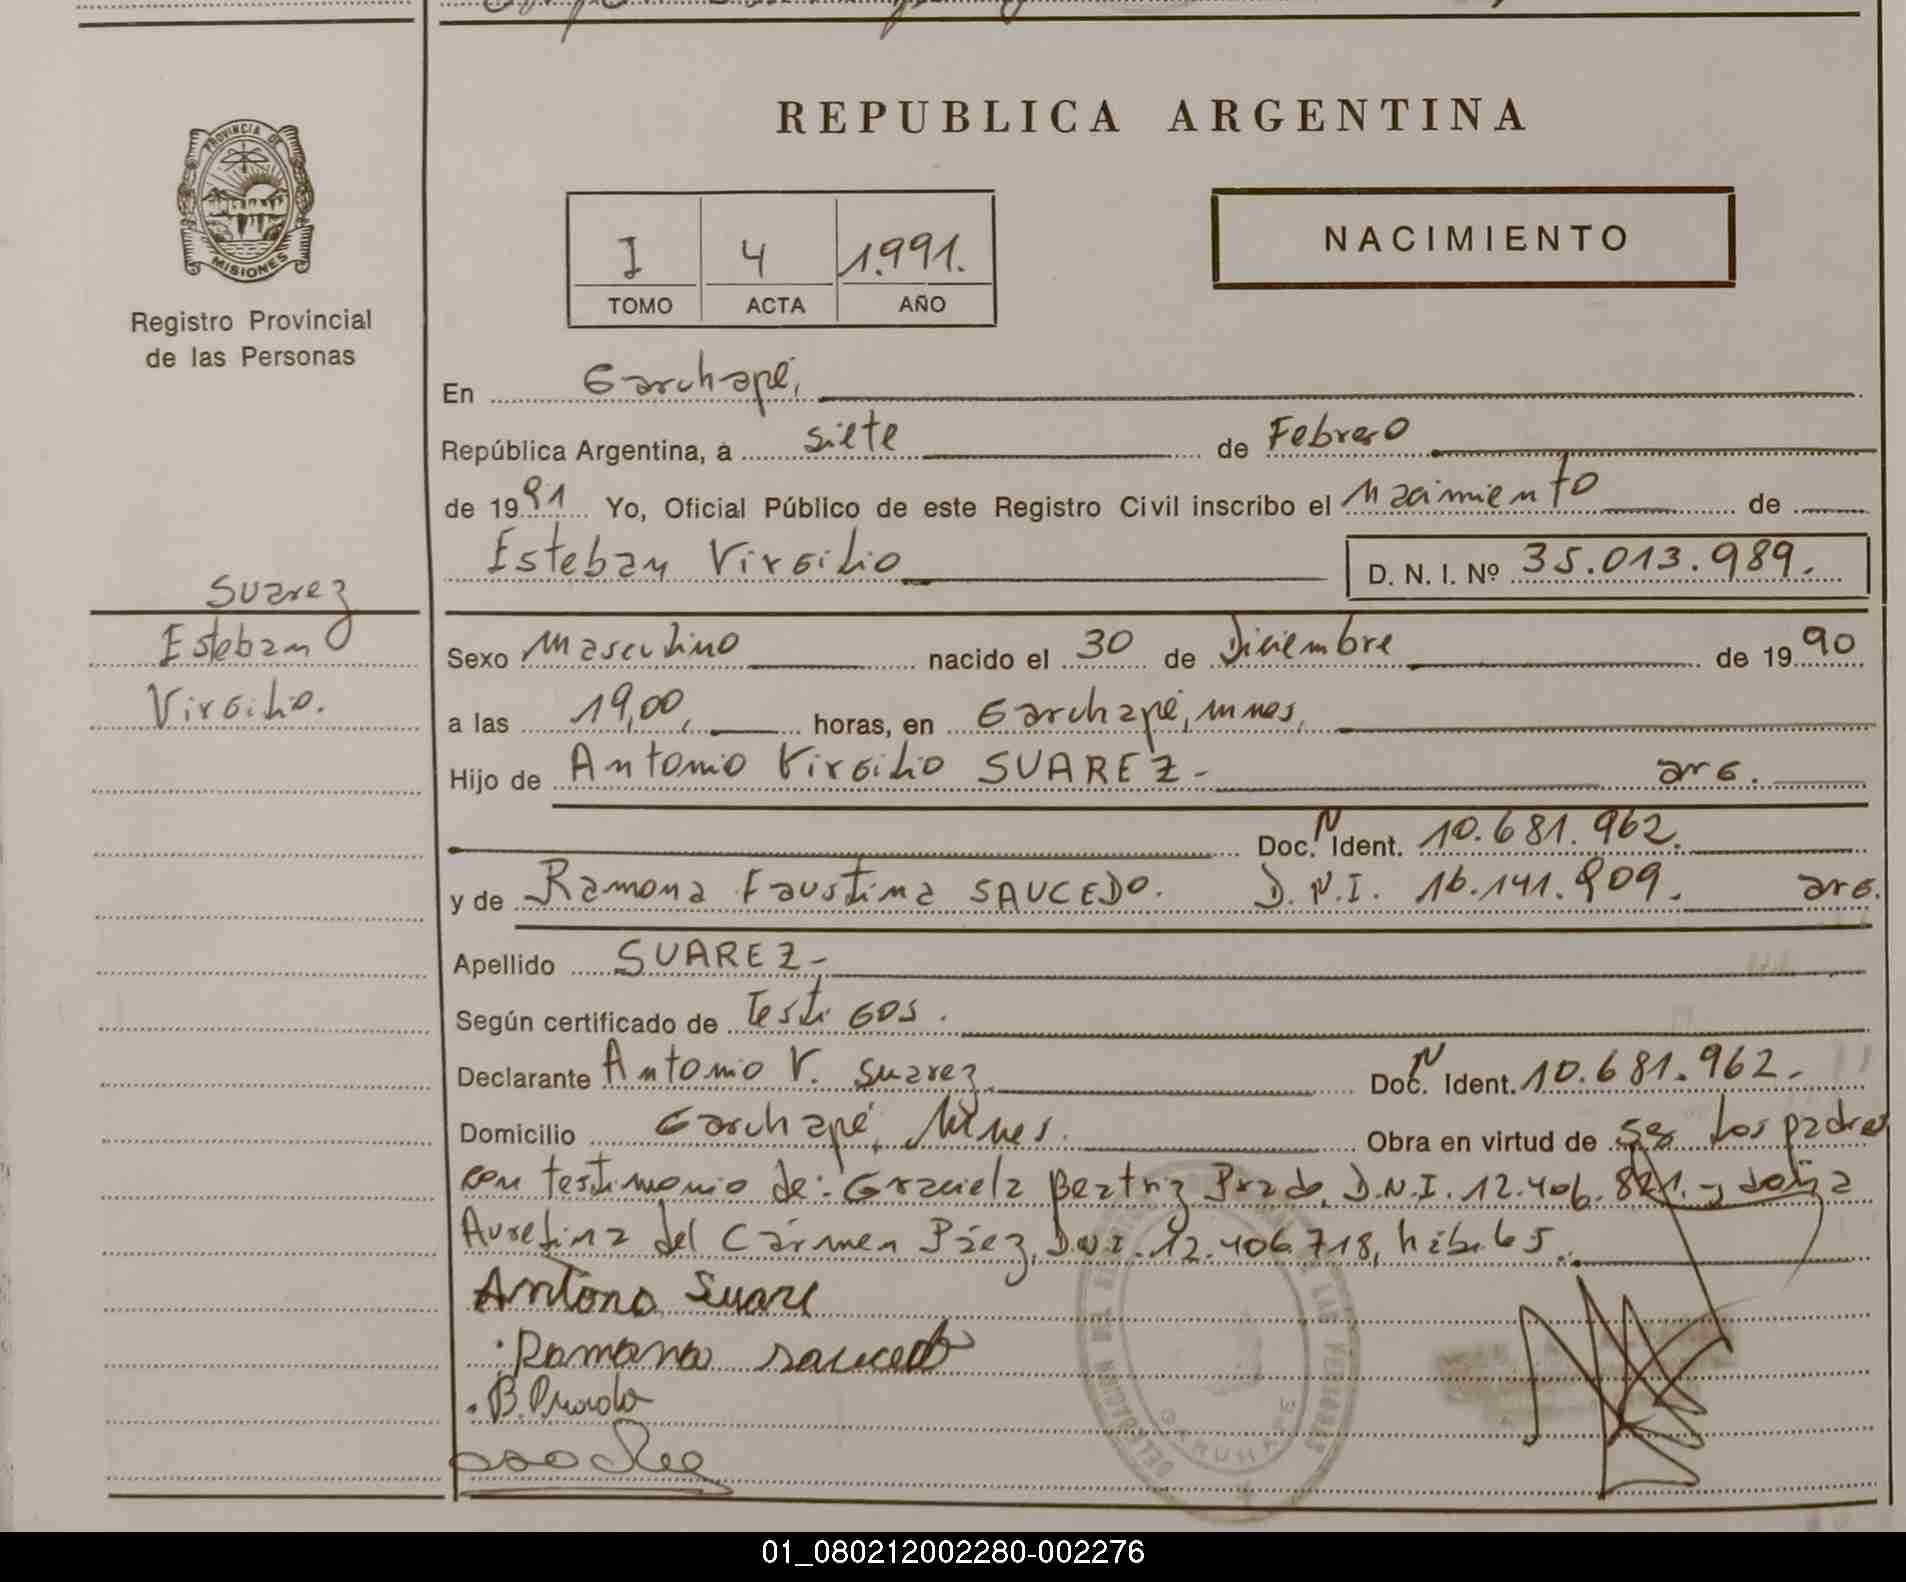 REPUBLICA ARGENTINA
PROVINCIA DE
MISIONES
Registro Provincial
de las Personas
I 4 1.991.
TOMO ACTA AÑO
NACIMIENTO
En Garuhapé,
República Argentina, a siete de Febrero
de 1991 Yo, Oficial Público de este Registro Civil inscribo el Nacimiento de
Esteban Virgilio D. N. I. Nº 35.013.989.
Suarez
Esteban
Virgilio.
Sexo Masculino nacido el 30 de Diciembre de 1990
a las 19,00, horas, en Garuhapé, Mnes,
Hijo de Antonio Virgilio SUAREZ- arg.
Doc. N Ident. 10.681.962.
y de Ramona Faustina SAUCEDO. D.N.I. 16.141.909. arg.
Apellido SUAREZ-
Según certificado de Testigos.
Declarante Antonio V. Suarez Doc. N Ident. 10.681.962.
Domicilio Garuhapé, Mnes. Obra en virtud de ser los padres
con testimonio de: Graciela Beatriz Prado, D.N.I. 12.406.821. y doña
Aurelina del Cármen Páez, D.N.I. 12.406.718, hábiles.
Antono Suare
Ramona saucedo
B. Prado
GARUHAPE
01_080212002280-002276